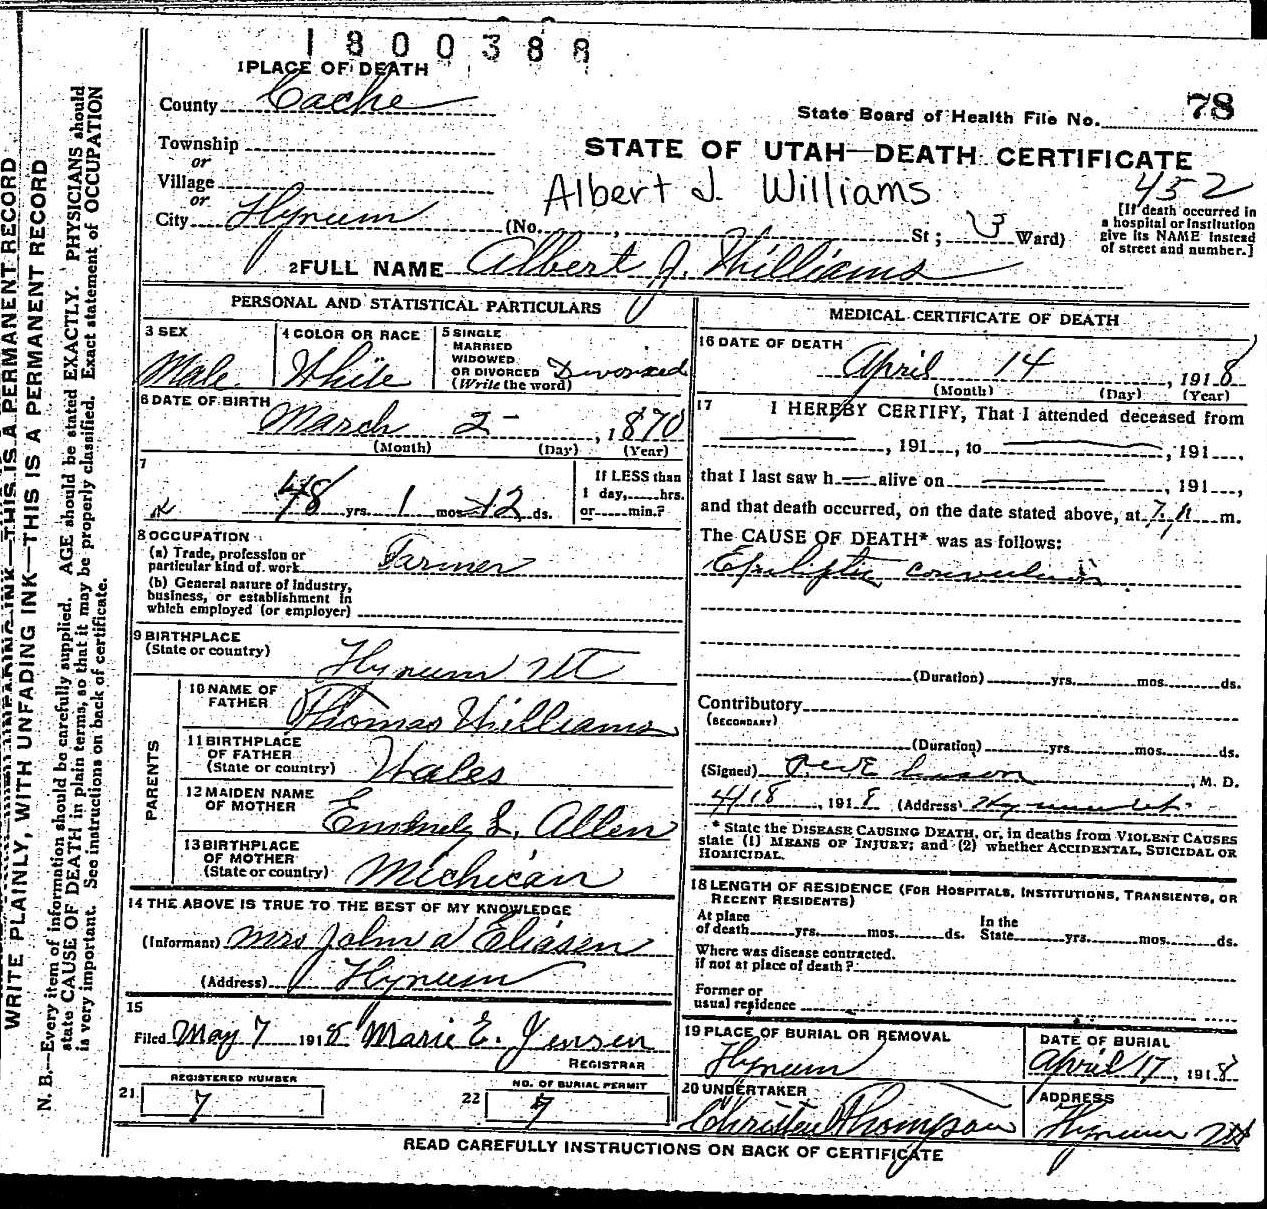 1800388
1 PLACE OF DEATH
County Cache
State Board of Health File No. 78
Township
or
Village
or
City Hyrum
STATE OF UTAH—DEATH CERTIFICATE
Albert J. Williams
452
(No. , St; 3 Ward)
[If death occurred in
a hospital or institution
give its NAME instead
of street and number.]
2 FULL NAME Albert J. Williams
PERSONAL AND STATISTICAL PARTICULARS
3 SEX
Male
4 COLOR OR RACE
White
5 SINGLE
MARRIED
WIDOWED
OR DIVORCED
(Write the word)
Divorced
6 DATE OF BIRTH
March 2 - , 1870
(Month) (Day) (Year)
7
48 yrs. 1 mos. 12 ds.
If LESS than
1 day, hrs.
or min.?
8 OCCUPATION
(a) Trade, profession or
particular kind of work Farmer
(b) General nature of industry,
business, or establishment in
which employed (or employer)
9 BIRTHPLACE
(State or country)
Hyrum Ut
PARENTS
10 NAME OF
FATHER
Thomas Williams
11 BIRTHPLACE
OF FATHER
(State or country)
Wales
12 MAIDEN NAME
OF MOTHER
L. Allen
13 BIRTHPLACE
OF MOTHER
(State or country)
Michican
14 THE ABOVE IS TRUE TO THE BEST OF MY KNOWLEDGE
(Informant) Mrs John A Eliasen
(Address) Hyrum
15
Filed May 7 1918 Marie E. Jensen
REGISTRAR
21 REGISTERED NUMBER
7
22 NO. OF BURIAL PERMIT
7
MEDICAL CERTIFICATE OF DEATH
16 DATE OF DEATH
April 14 , 1918
(Month) (Day) (Year)
17 I HEREBY CERTIFY, That I attended deceased from
, 191 , to , 191 ,
that I last saw h alive on , 191 ,
and that death occurred, on the date stated above, at 7 m.
The CAUSE OF DEATH* was as follows:
Epileptic convulsions
(Duration) yrs. mos. ds.
Contributory
(SECONDARY)
(Duration) yrs. mos. ds.
(Signed) , M. D.
4/18 , 1918 (Address) Hyrum Ut.
* State the DISEASE CAUSING DEATH, or, in deaths from VIOLENT CAUSES
state (1) MEANS OF INJURY; and (2) whether ACCIDENTAL, SUICIDAL OR
HOMICIDAL.
18 LENGTH OF RESIDENCE (FOR HOSPITALS, INSTITUTIONS, TRANSIENTS, OR
RECENT RESIDENTS)
At place
of death yrs. mos. ds.
In the
State yrs. mos. ds.
Where was disease contracted,
if not at place of death?
Former or
usual residence
19 PLACE OF BURIAL OR REMOVAL
Hyrum
DATE OF BURIAL
April 17, 1918
20 UNDERTAKER
Thompson
ADDRESS
Hyrum Ut
READ CAREFULLY INSTRUCTIONS ON BACK OF CERTIFICATE
WRITE PLAINLY, WITH UNFADING INK—THIS IS A PERMANENT RECORD
N. B.—Every item of information should be carefully supplied. AGE should be stated EXACTLY. PHYSICIANS should
state CAUSE OF DEATH in plain terms, so that it may be properly classified. Exact statement of OCCUPATION
is very important. See instructions on back of certificate.